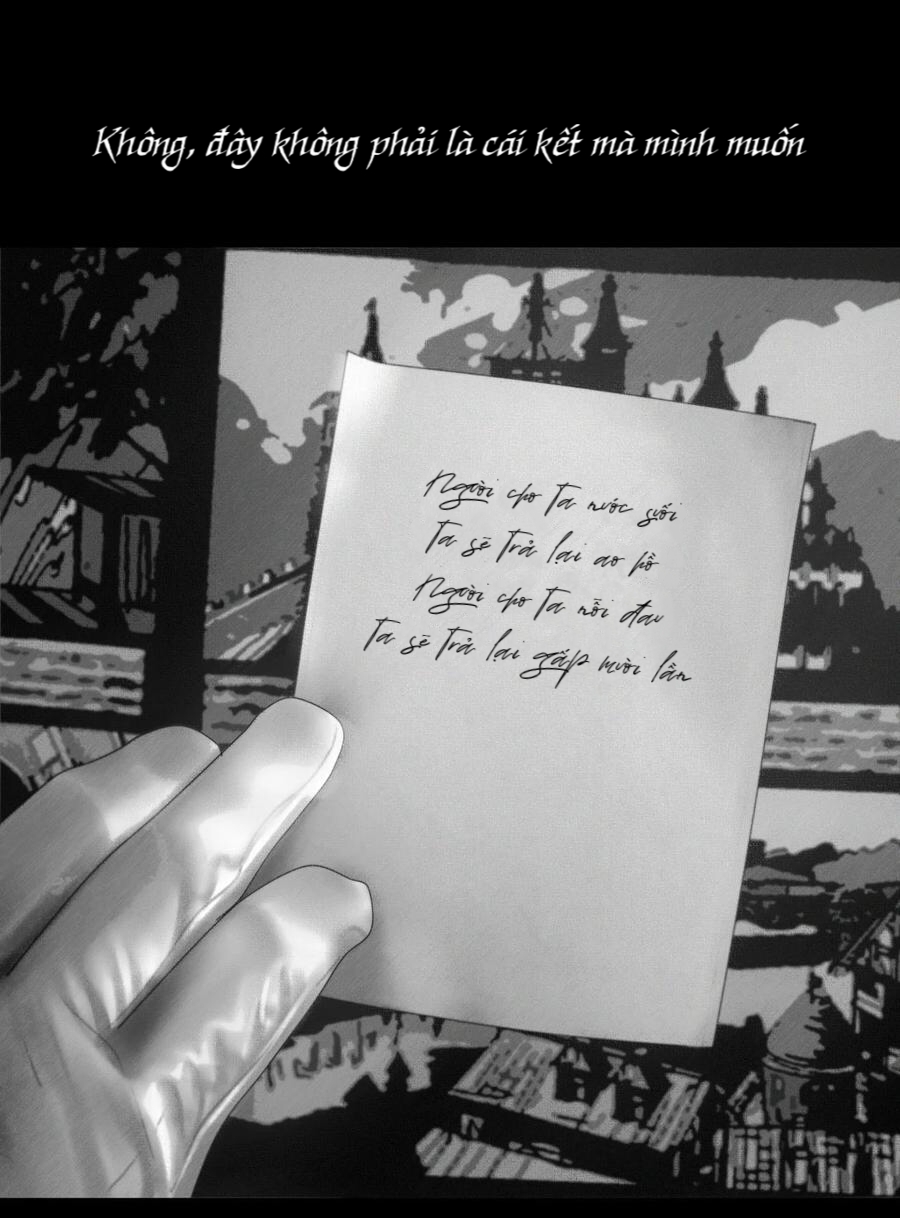 Không, đây không phải là cái kết mà mình muốn
Người cho ta nước suối
Ta sẽ trả lại ao hồ
Người cho ta nỗi đau
Ta sẽ trả lại gấp mười lần